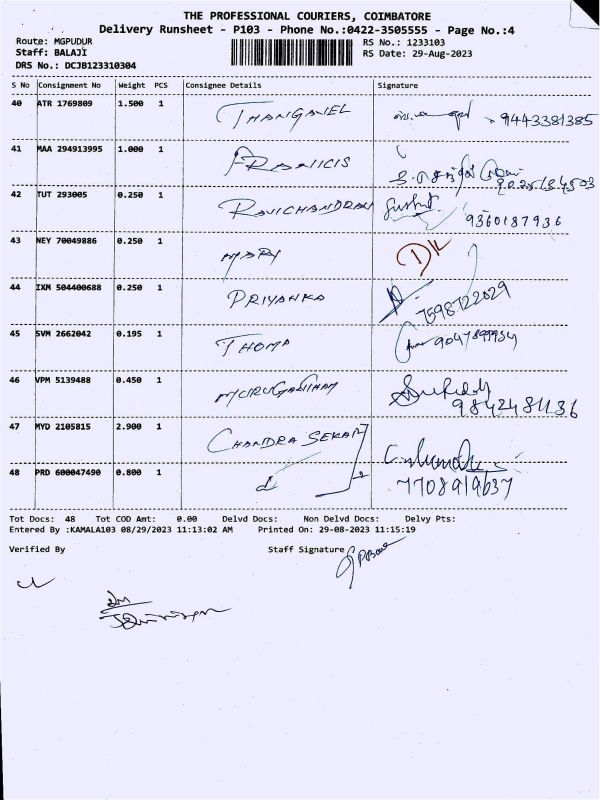 THE PROFESSIONAL COURIERS, COIMBATORE
Delivery Runsheet - P103 - Phone No.:0422-3505555 - Page No.:4
Route: MGPUDUR
Staff: BALAJI
DRS No.: DCJB123310304
RS No.: 1233103
RS Date: 29-Aug-2023
S No Consignment No Weight PCS Consignee Details Signature
40 ATR 1769809 1.500 1 THANGAVEL 9443381385
41 MAA 294913995 1.000 1 FRANCIS
42 TUT 293005 0.250 1 RAVICHANDRAN 9360187936
43 NEY 70049886 0.250 1 MARY
44 IXM 504400688 0.250 1 PRIYANKA 7598722029
45 SVM 2662042 0.195 1 THOMA 9047899934
46 VPM 5139488 0.450 1 9842481136
47 MYD 2105815 2.900 1 CHANDRA SEKAR
48 PRD 600047490 0.800 1 7708919637
Tot Docs: 48 Tot COD Amt: 0.00 Delvd Docs: Non Delvd Docs: Delvy Pts:
Entered By :KAMALA103 08/29/2023 11:13:02 AM Printed On: 29-08-2023 11:15:19
Verified By Staff Signature